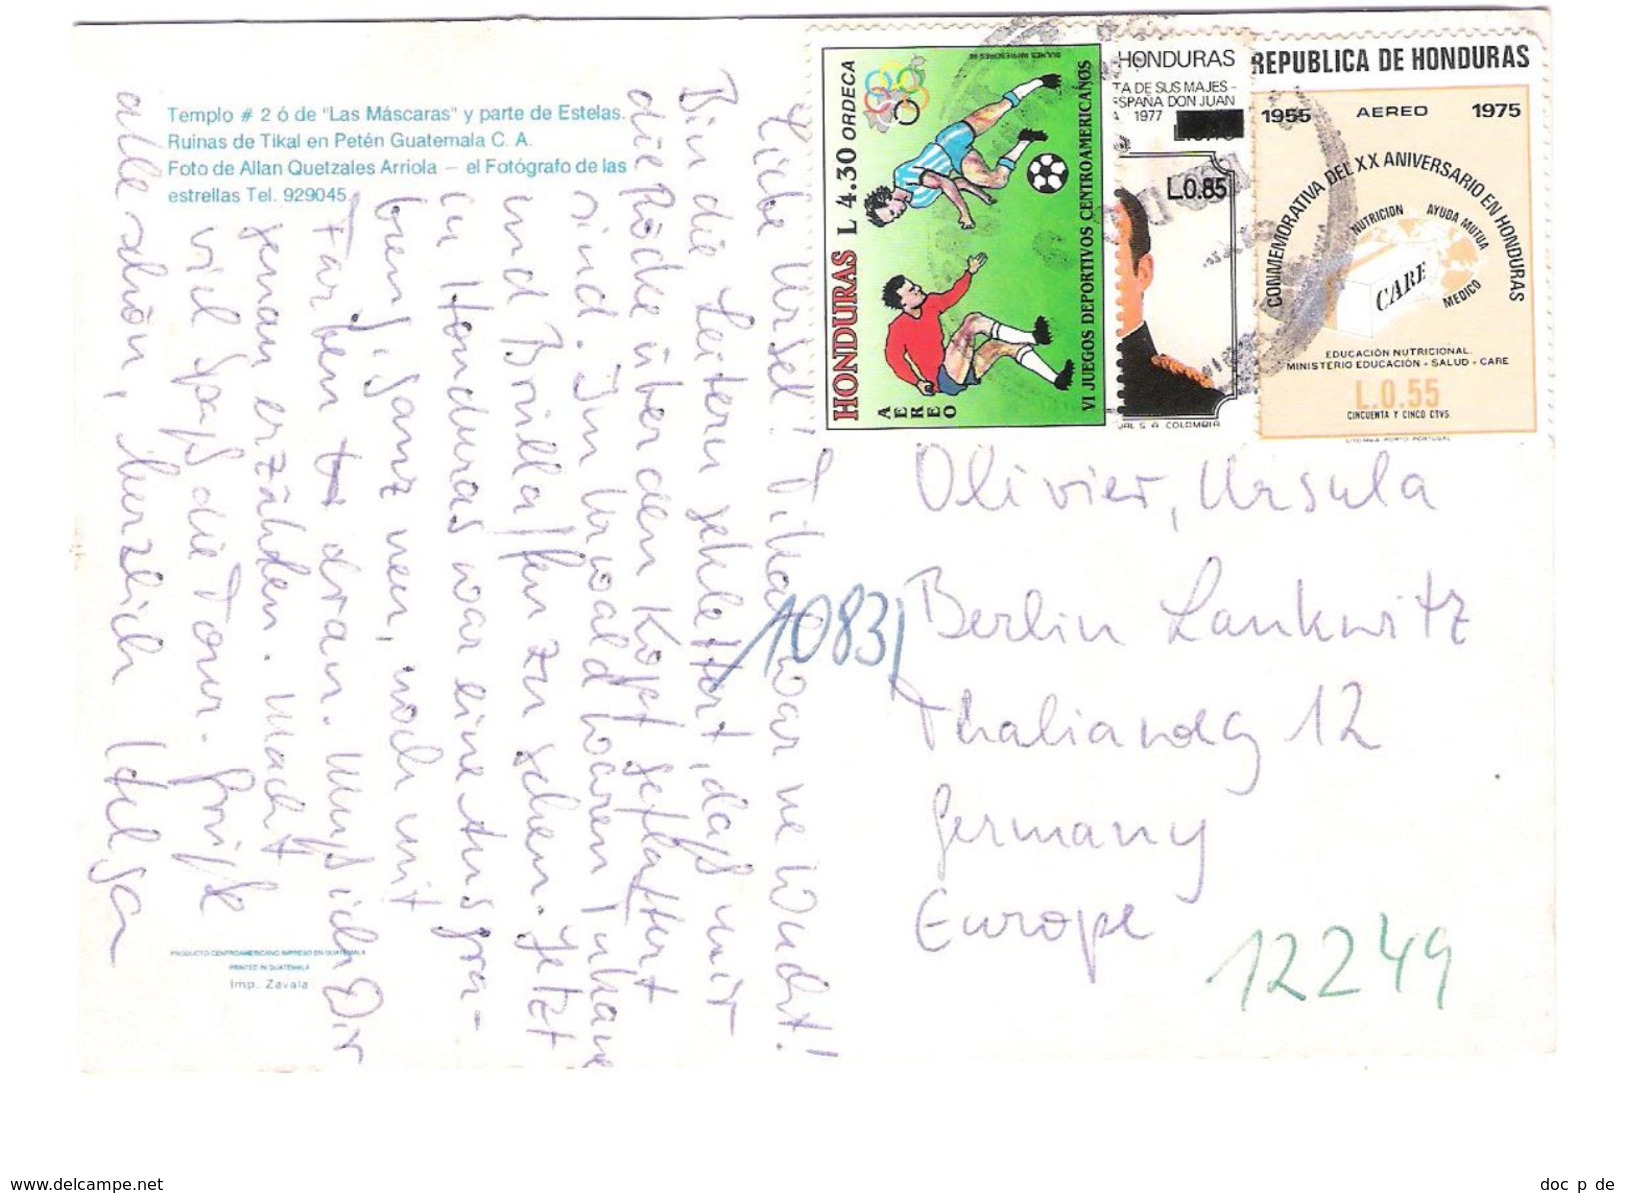 Templo # 2 ó de "Las Máscaras" y parte de Estelas.
Ruinas de Tikal en Petén Guatemala C. A.
Foto de Allan Quetzales Arriola — el Fotógrafo de las
estrellas Tel. 929045.
Liebe Ursel! Tikal war ne Wucht!
Bin die Leitern geklettert, daß mir
die Röcke über den Kopf geflattert
sind. Im Urwald waren
und Brüllaffen zu sehen. Jetzt
in Honduras war eine Ausgra-
bung, ganz neu, noch mit
Farben dran. Muß ich Dir
genau erzählen. Macht
viel Spaß die Tour. Grüße
alle schön, herzlich Helga
HONDURAS L 4.30 ORDECA
AEREO
VI JUEGOS DEPORTIVOS CENTROAMERICANOS
HONDURAS
TA DE SUS MAJES-
ESPAÑA DON JUAN
1977
L0.85
S A COLOMBIA
REPUBLICA DE HONDURAS
1955 AEREO 1975
CONMEMORATIVA DEL XX ANIVERSARIO EN HONDURAS
NUTRICION AYUDA MUTUA
CARE
MEDICO
EDUCACIÓN NUTRICIONAL.
MINISTERIO EDUCACIÓN - SALUD - CARE
L.0.55
CINCUENTA Y CINCO CTVS.
LITO MAIA PORTO PORTUGAL
Olivier, Ursula
Berlin Lankwitz
Thaliaweg 12
Germany
Europe
10831
12249
PRODUCTO CENTROAMERICANO IMPRESO EN GUATEMALA
PRINTED IN GUATEMALA
Imp. Zavala
www.delcampe.net
doc_p_de